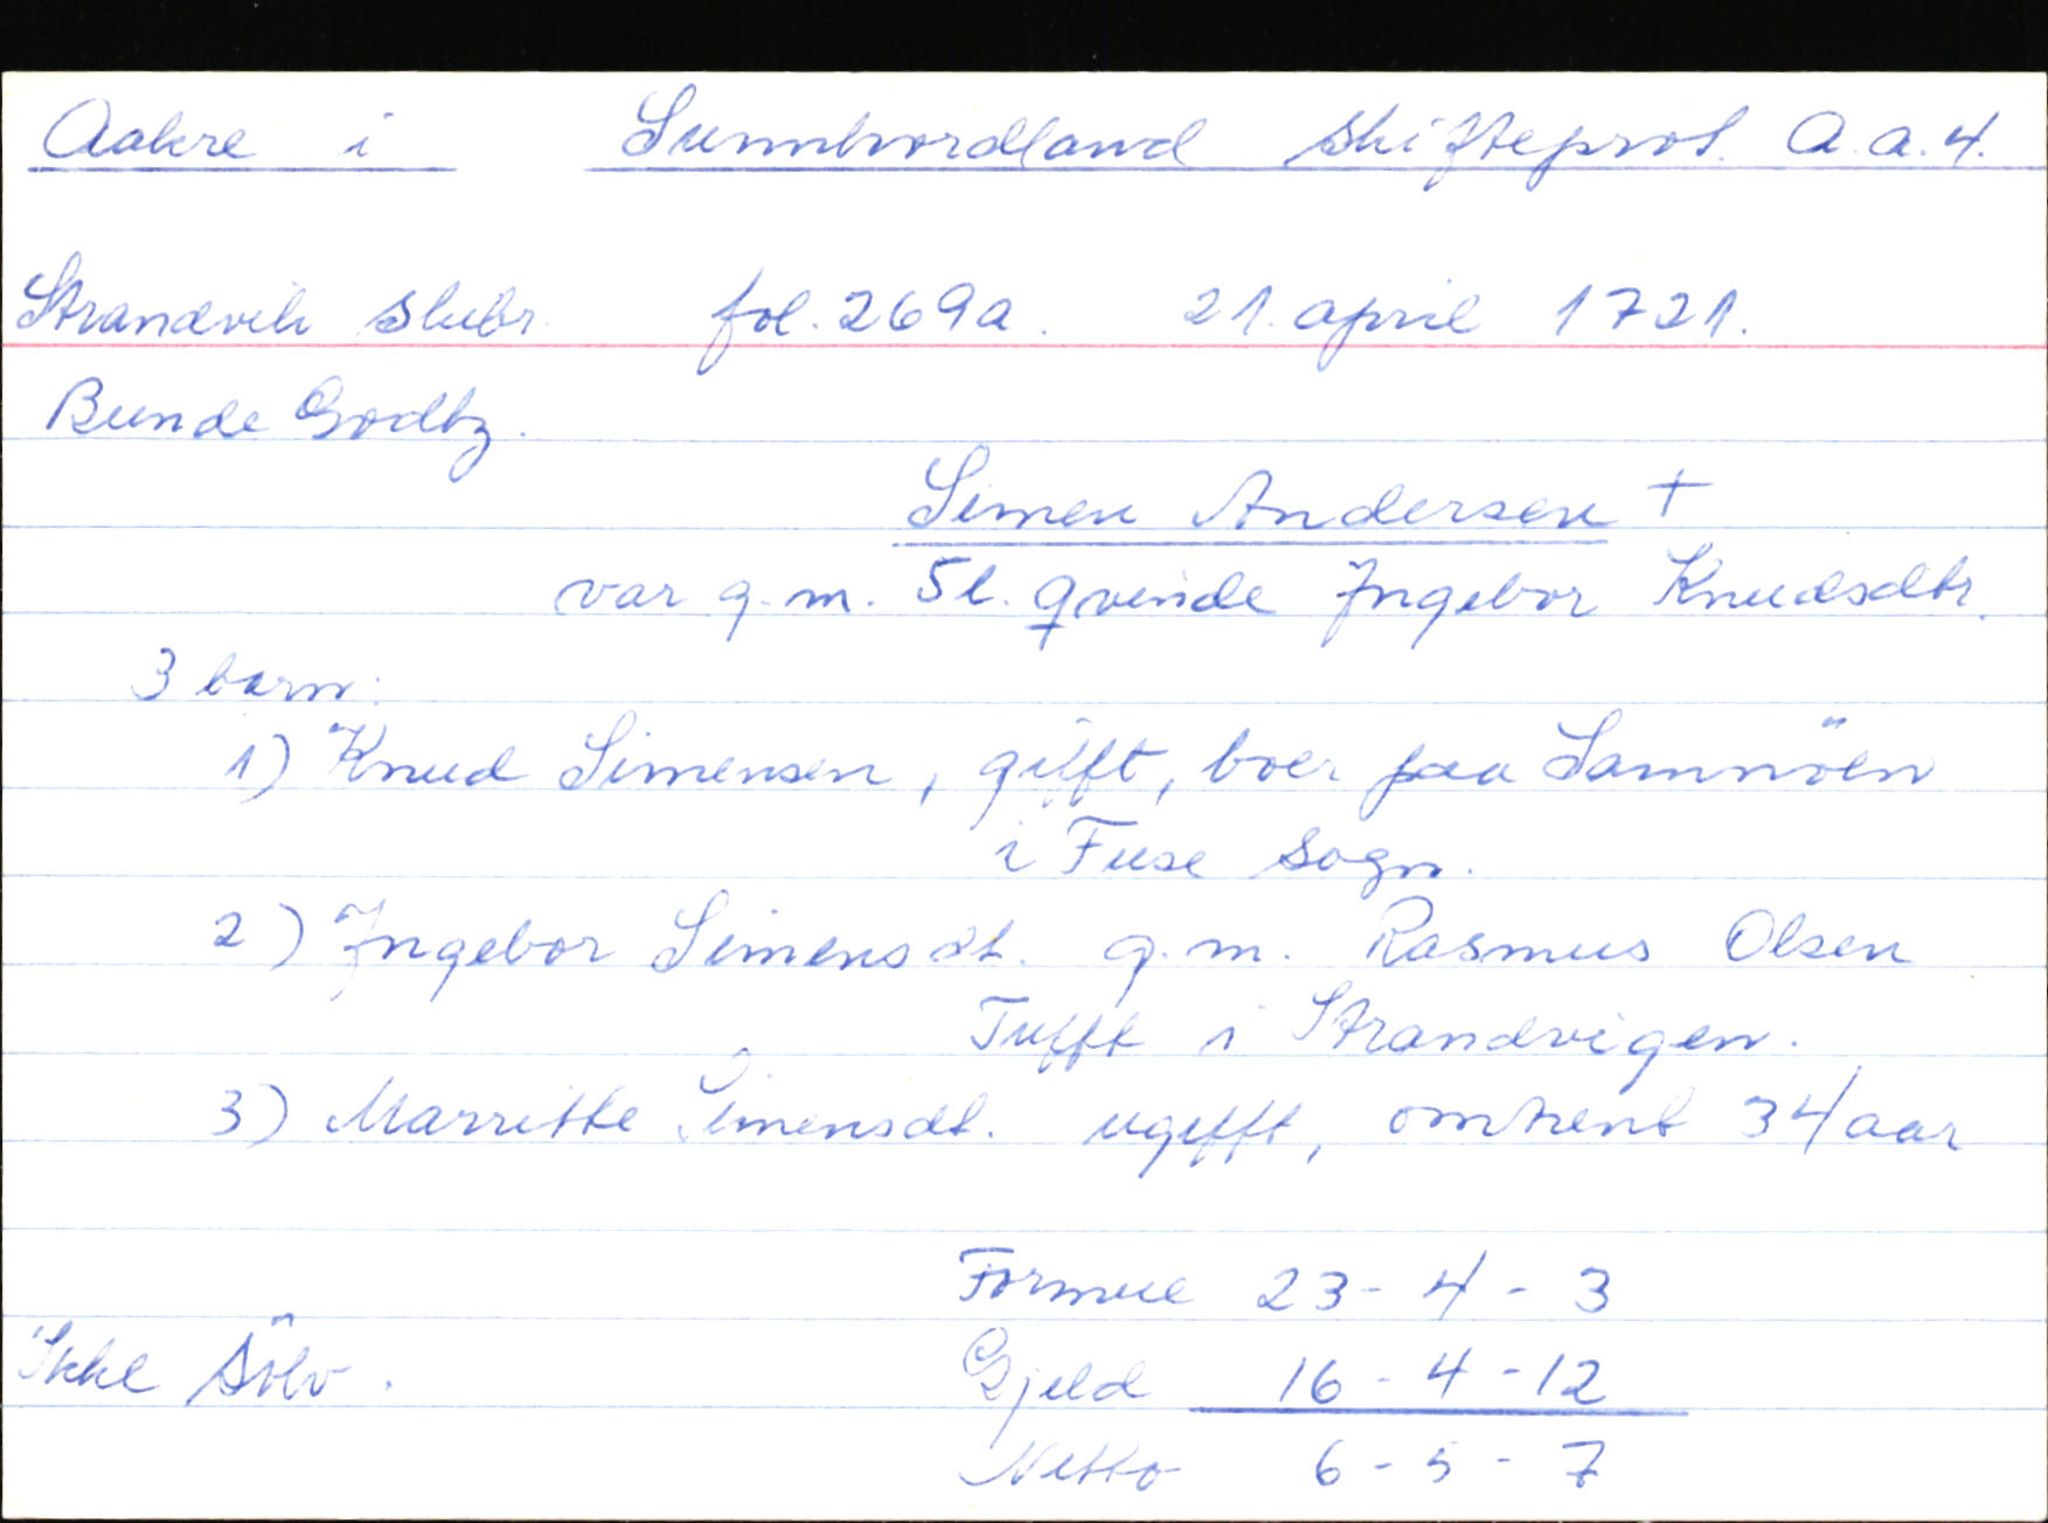 Aakre i Sunnhordland Skifteprot. A.a.4.
Strandvik Skibr. fol. 269a. 21. april 1721.
Bunde Godtz.
Simen Andersen +
var g.m. Sl. qvinde Ingebor Knudsdtr.
3 barn:
1) Knud Simensen, gifft, boer paa Samnöen
i Fuse Sogn.
2) Ingebor Simensdt. g.m. Rasmus Olsen
Tufft i Strandvigen.
3) Marritte Simensdt. ugifft, omtrent 34 aar
Formue 23 - 4 - 3
Ikke Sölv. Gjeld 16 - 4 - 12
Netto 6 - 5 - 7